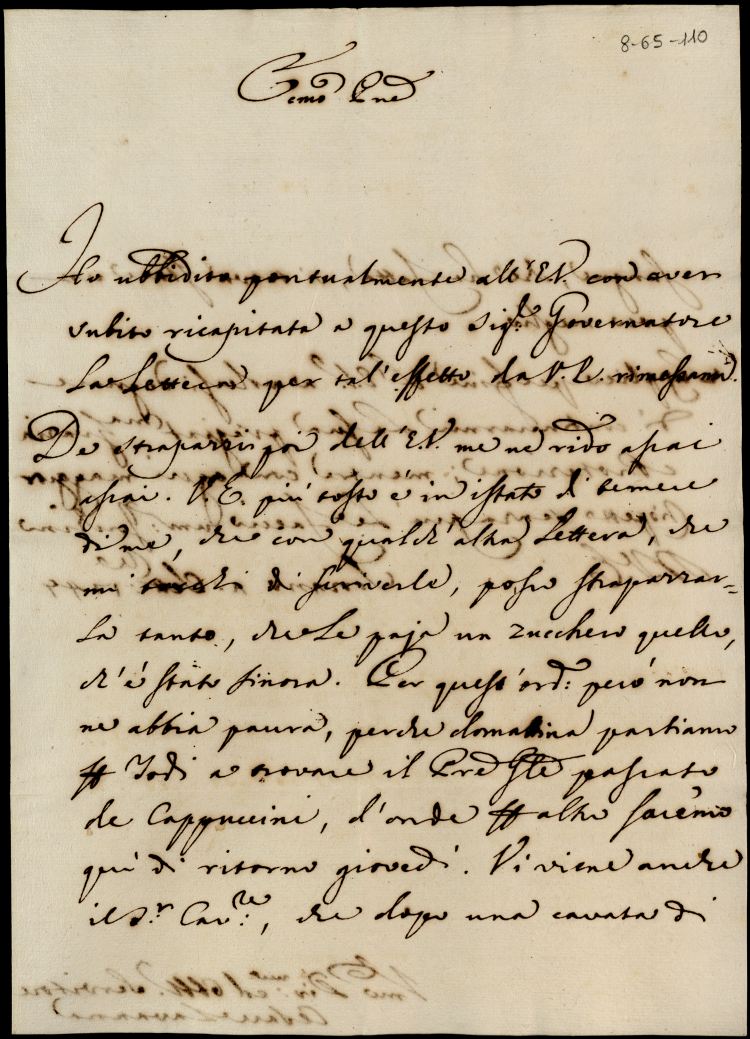 8-65-110
Ecc.mo Pne
Ho ubbidito pontualmente all'E.V. con aver
subito ricapitata a questo Sig.r Governatore
la Lettera per tal'effetto da V.E. rimessami.
De strapazzi poi dell'E.V. me ne rido assai
assai. V.E. più tosto è in istato di temere
di me, che con qualch'altra Lettera, che
mi tocchi di scriverle, posso strapazzar=
la tanto, che Le paja un zucchero quello,
ch'è stato finora. Per quest'ord: però non
ne abbia paura, perche domattina partiamo
per Todi a trovare il Pre Gle passato
de Cappuccini, d'onde per altro saremo
quì di ritorno giovedì. Vi viene anche
il S.r Cav.re, che dopo una cavata di